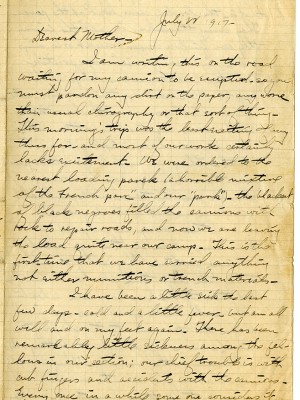 July 11 1917-
Dearest Mother-
I am writing this on the road
waiting for my camion to be emptied - so you
must pardon any dirt on the paper, any worse
than usual chirography or that sort of thing-
This morning's trip was the least exciting of any
thus far - and most of our work certainly
lacks excitement. We were ordered to the
nearest loading park (a horrible mixture
of the French "parc" and our "park") - the blackest
of black negroes filled the camions with
rock to repair roads, and now we are leaving
the load quite near our camp - This is the
first time that we have carried anything
not either munitions or trench materials.-
I have been a little sick the last
few days - cold and a little fever, but am all
well and on my feet again - There has been
remarkably little sickness among the fel-
lows in our section; our chief trouble is with
cut fingers and accidents with the camions-
Every once in a while some one